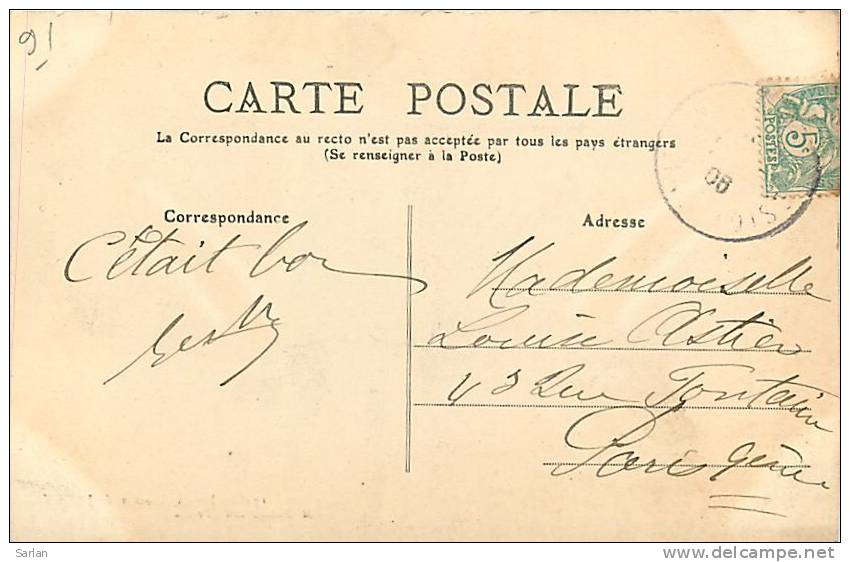 91
CARTE POSTALE
La Correspondance au recto n'est pas acceptée par tous les pays étrangers
(Se renseigner à la Poste)
POSTES
5c
08
Correspondance
Adresse
C'était bon
Mademoiselle
Louise Astier
43 Rue Fontaine
Paris 9ème
Sarlan
www.delcampe.net